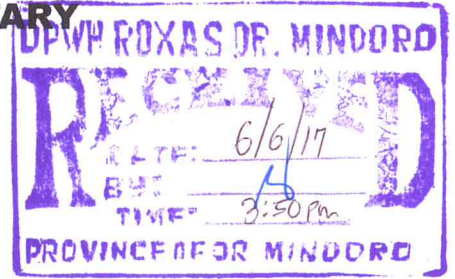 ARY
DPWH ROXAS OR. MINDORO
RECEIVED
DATE: 6/6/17
BY:
TIME: 3:50 Pm
PROVINCE OF OR MINDORO